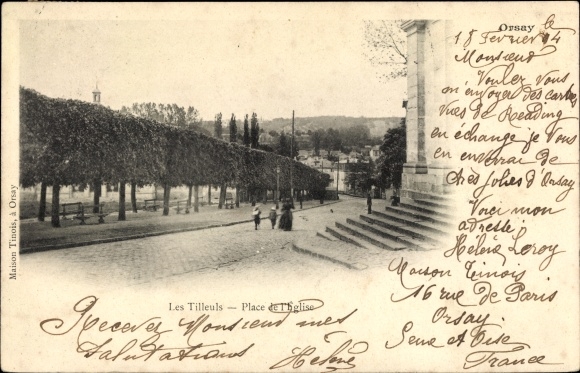 Orsay le
18 Fevrier 04
Monsieur
Voulez Vous
m'envoyer des cartes
vues de Reading
en échange je Vous
en enverrai de
très jolies d'Orsay
Voici mon
adresse
Hélène Leroy
Maison Tinois
16 rue de Paris
Orsay.
Seine et Oise
France
Maison Tinois, à Orsay
Les Tilleuls — Place de l'Eglise
Recevez Monsieur mes
Salutations
Hélène